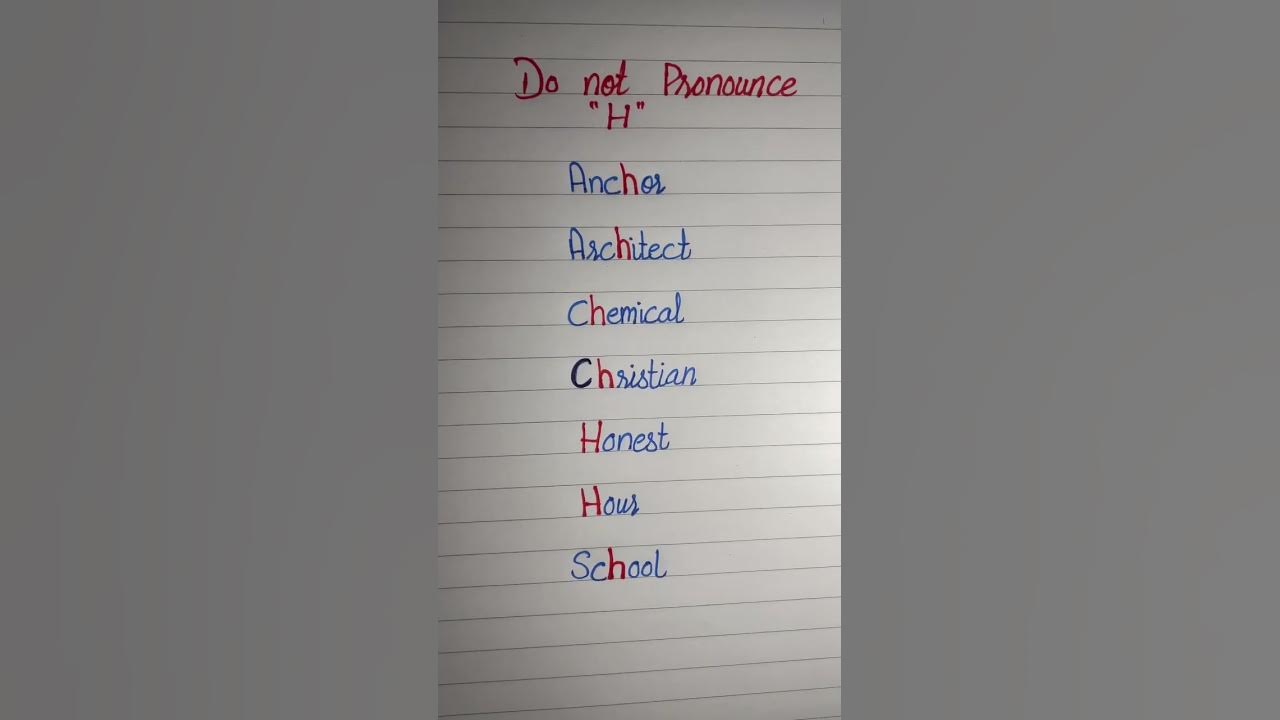 Do not Pronounce
"H"
Anchor
Architect
Chemical
Christian
Honest
Hour
School